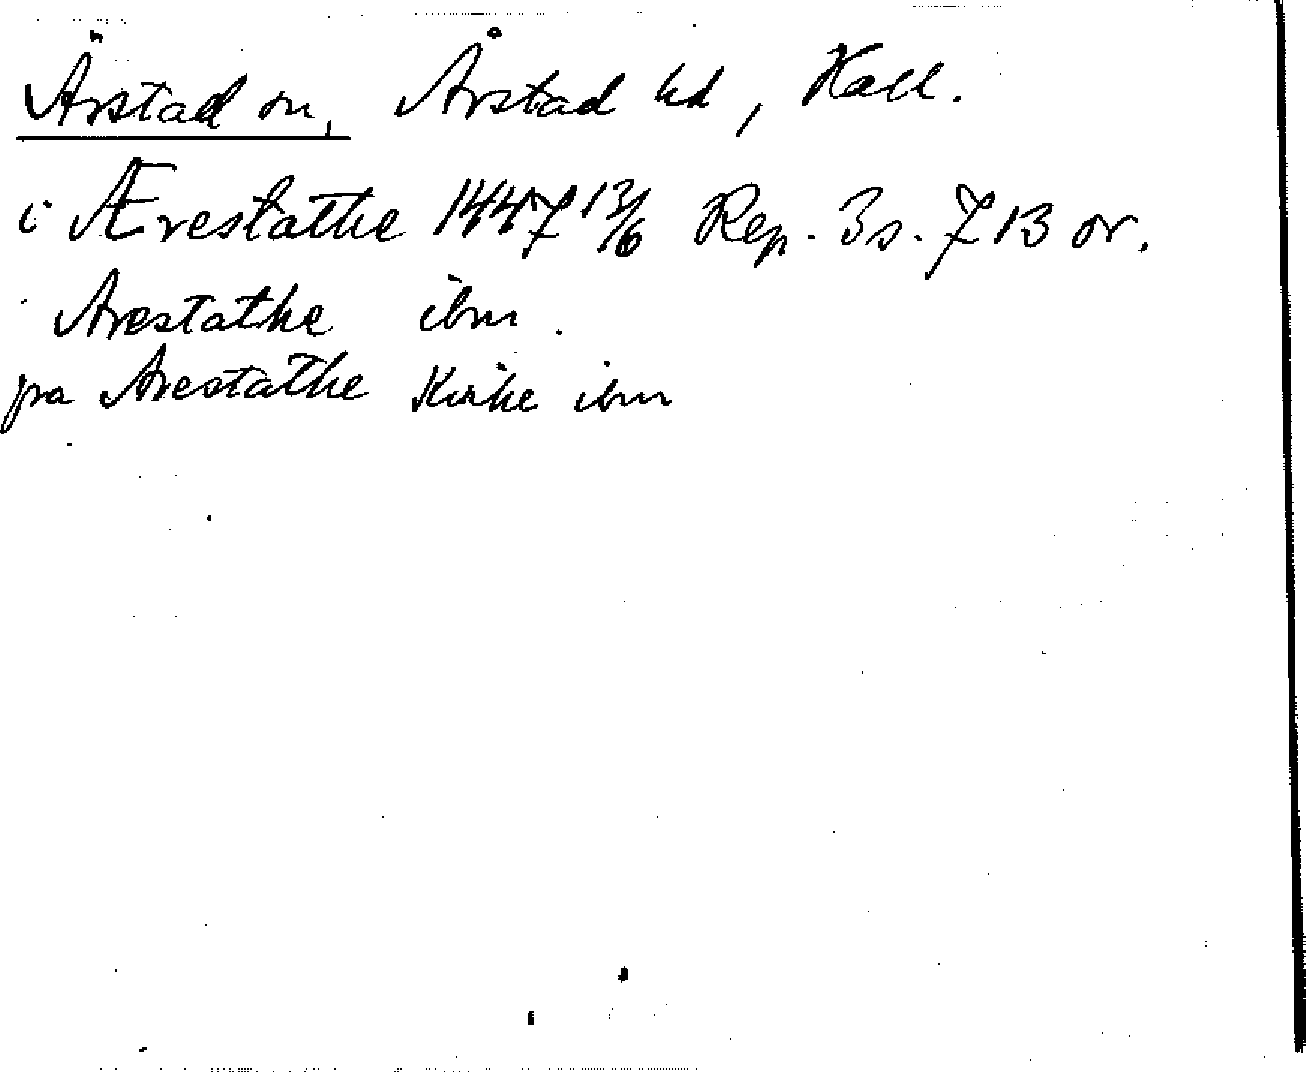 Ärstad sn, Årstad hd, Hall.
i Ærestathe 1447 13/6 Rep. 3 s. 713 or.
Arestathe ibm.
pa Arestathe Kirke ibm